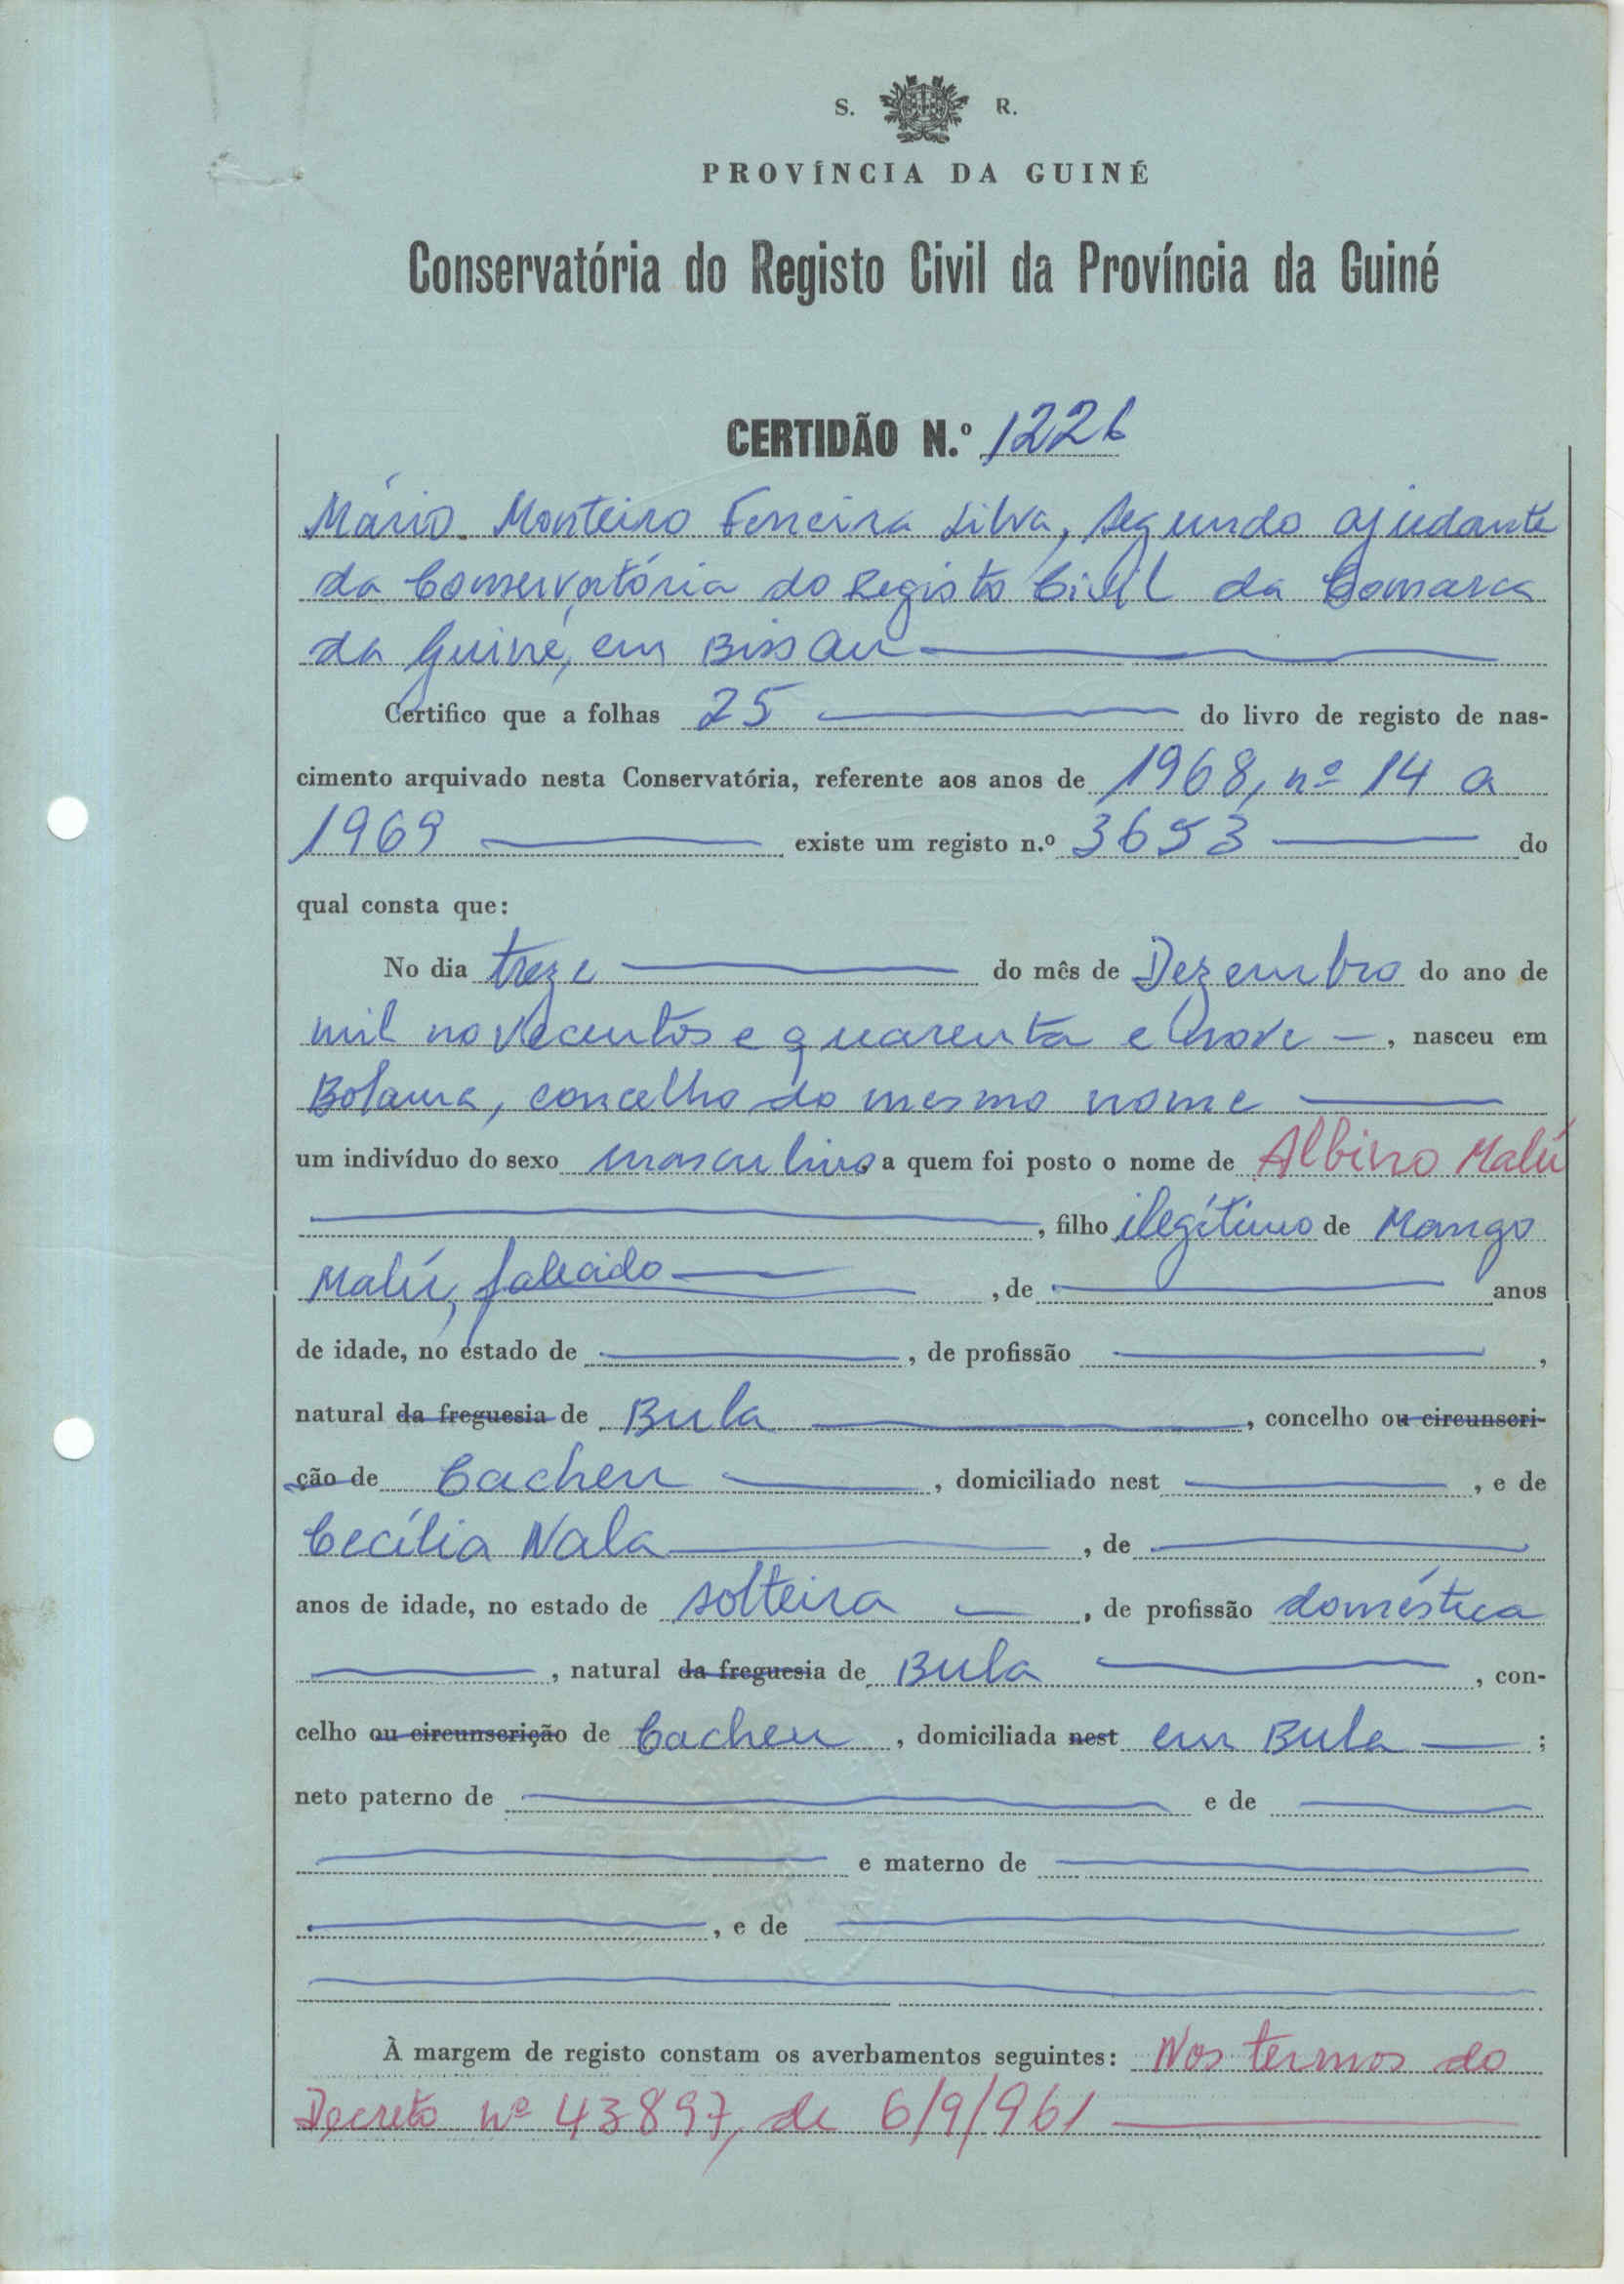 S. R.
PROVÍNCIA DA GUINÉ
Conservatória do Registo Civil da Província da Guiné
CERTIDÃO N.º 1226
Mário Monteiro Ferreira Silva, segundo ajudante
da Conservatória do Registo Civil da Comarca
da Guiné, em Bissau
Certifico que a folhas 25 do livro de registo de nas-
cimento arquivado nesta Conservatória, referente aos anos de 1968, nº 14 a
1969 existe um registo n.º 3653 do
qual consta que:
No dia treze do mês de Dezembro do ano de
mil novecentos e quarenta e nove —, nasceu em
Bolama, concelho do mesmo nome
um indivíduo do sexo masculino a quem foi posto o nome de Albino Malú
, filho ilegítimo de Mango
Malú, falecido , de anos
de idade, no estado de , de profissão ,
natural da freguesia de Bula , concelho ou circunscri-
ção de Cacheu , domiciliado nest , e de
Cecília Nala , de
anos de idade, no estado de solteira — , de profissão doméstica
, natural da freguesia de Bula , con-
celho ou circunscrição de Cacheu , domiciliada nest em Bula — ;
neto paterno de e de
e materno de
, e de
À margem de registo constam os averbamentos seguintes: Nos termos do
Decreto nº 43897, de 6/9/961